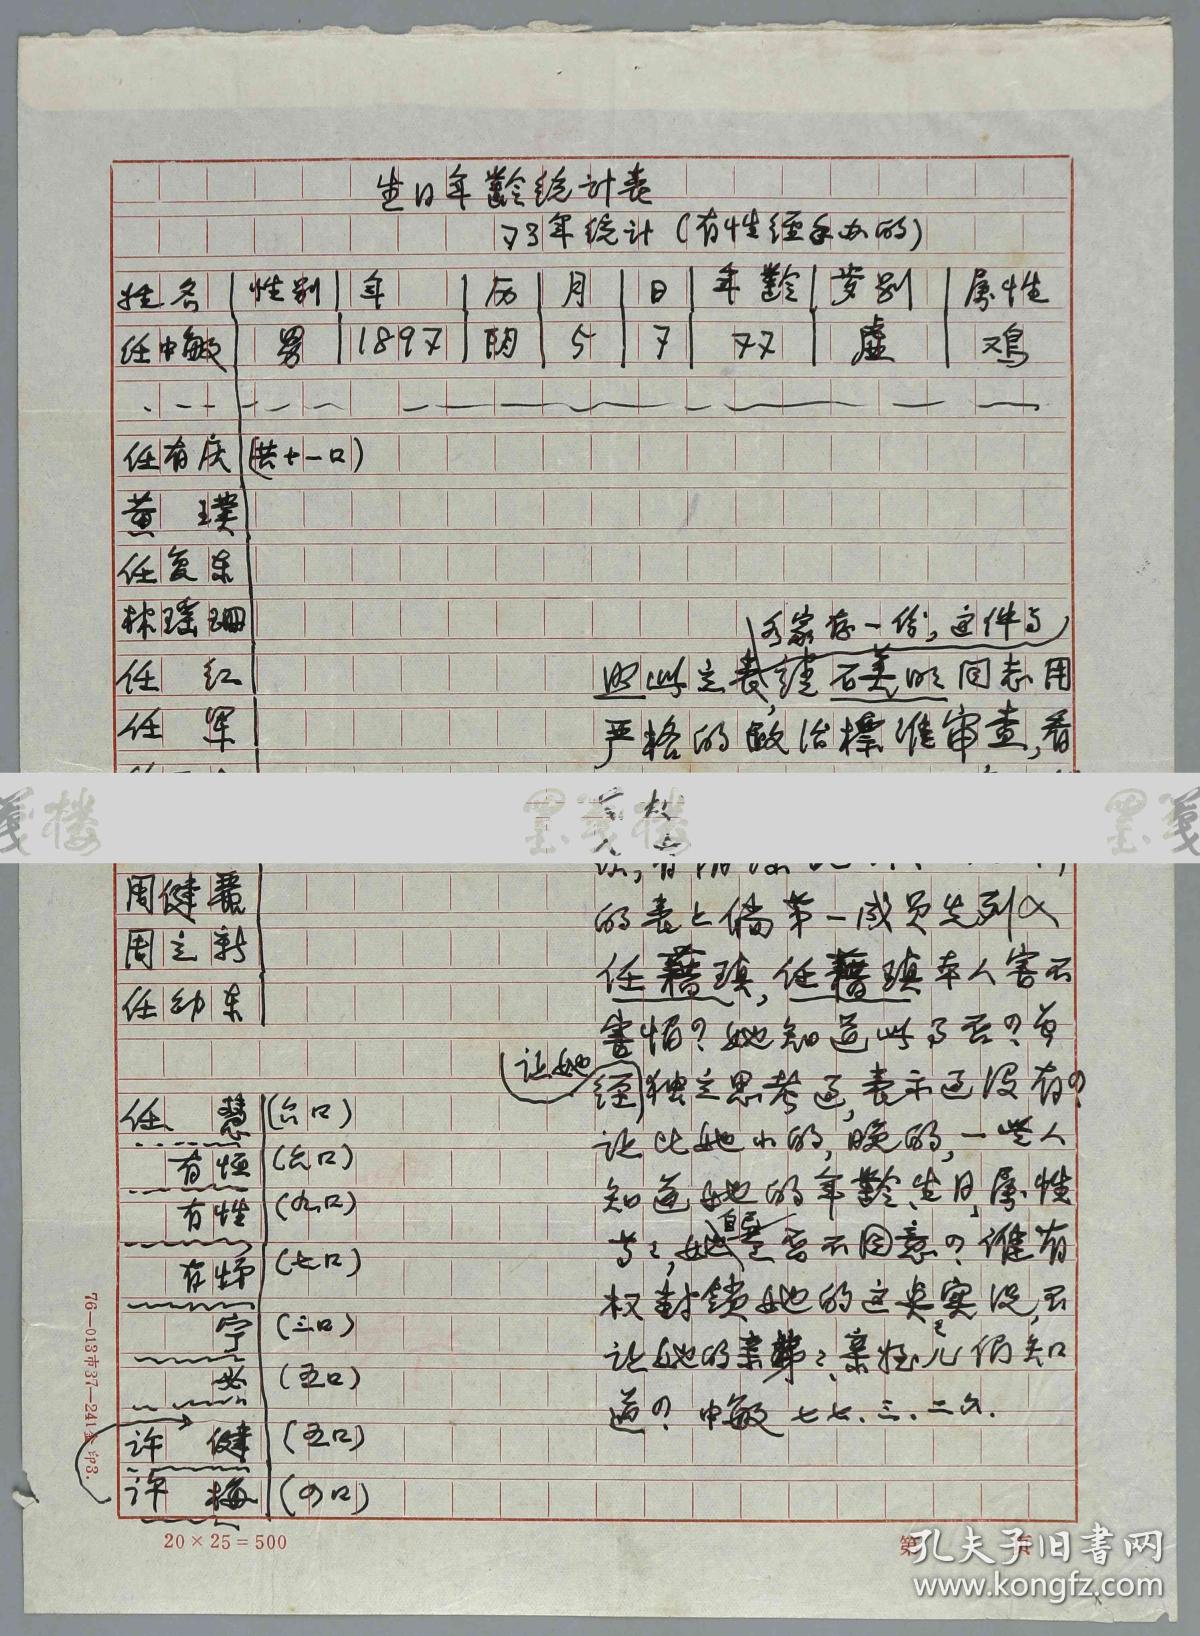 生日年龄统计表
73年统计（有性经手办的）
姓名 性别 年 历 月 日 年龄 岁别 属性
任中敏 男 1897 阴 5 7 77 虚 鸡
任有庆（共十一口）
黄璞
任复东
林瑶珊
任红
任军
周健
周立新
任幼东
任慧（六口）
有恒（六口）
有性（九口）
有娣（七口）
宁（三口）
必（五口）
许健（五口）
许梅（四口）
各家存一份，这件与
照此立表，请石美明同志用
严格的政治标准审查，看
的表上倘第一成员先列入
任藉瑱，任藉瑱本人害不
害怕？她知道此事否？曾
让她
经独立思考过，表示过没有？
让比她小的，晚的，一些人
知道她的年龄、生日、属性
等等，她是否不同意？谁有
权封锁她的这类实况，不
让她的亲弟弟、亲侄儿们知
道？中敏 七七.三.二六.
76—013市37—241 印3.
20×25=500
第 页
墨笺楼
孔夫子旧书网
www.kongfz.com